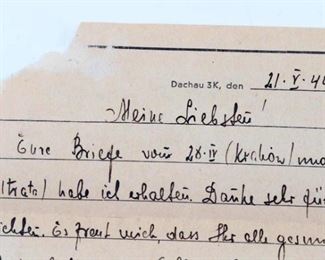 Dachau 3K, den 21. V. 44
Meine Liebsten!
Eure Briefe vom 28. IV (Kraków) und
habe ich erhalten. Danke sehr für
ichten. Es freut mich, dass Ihr alle gesun